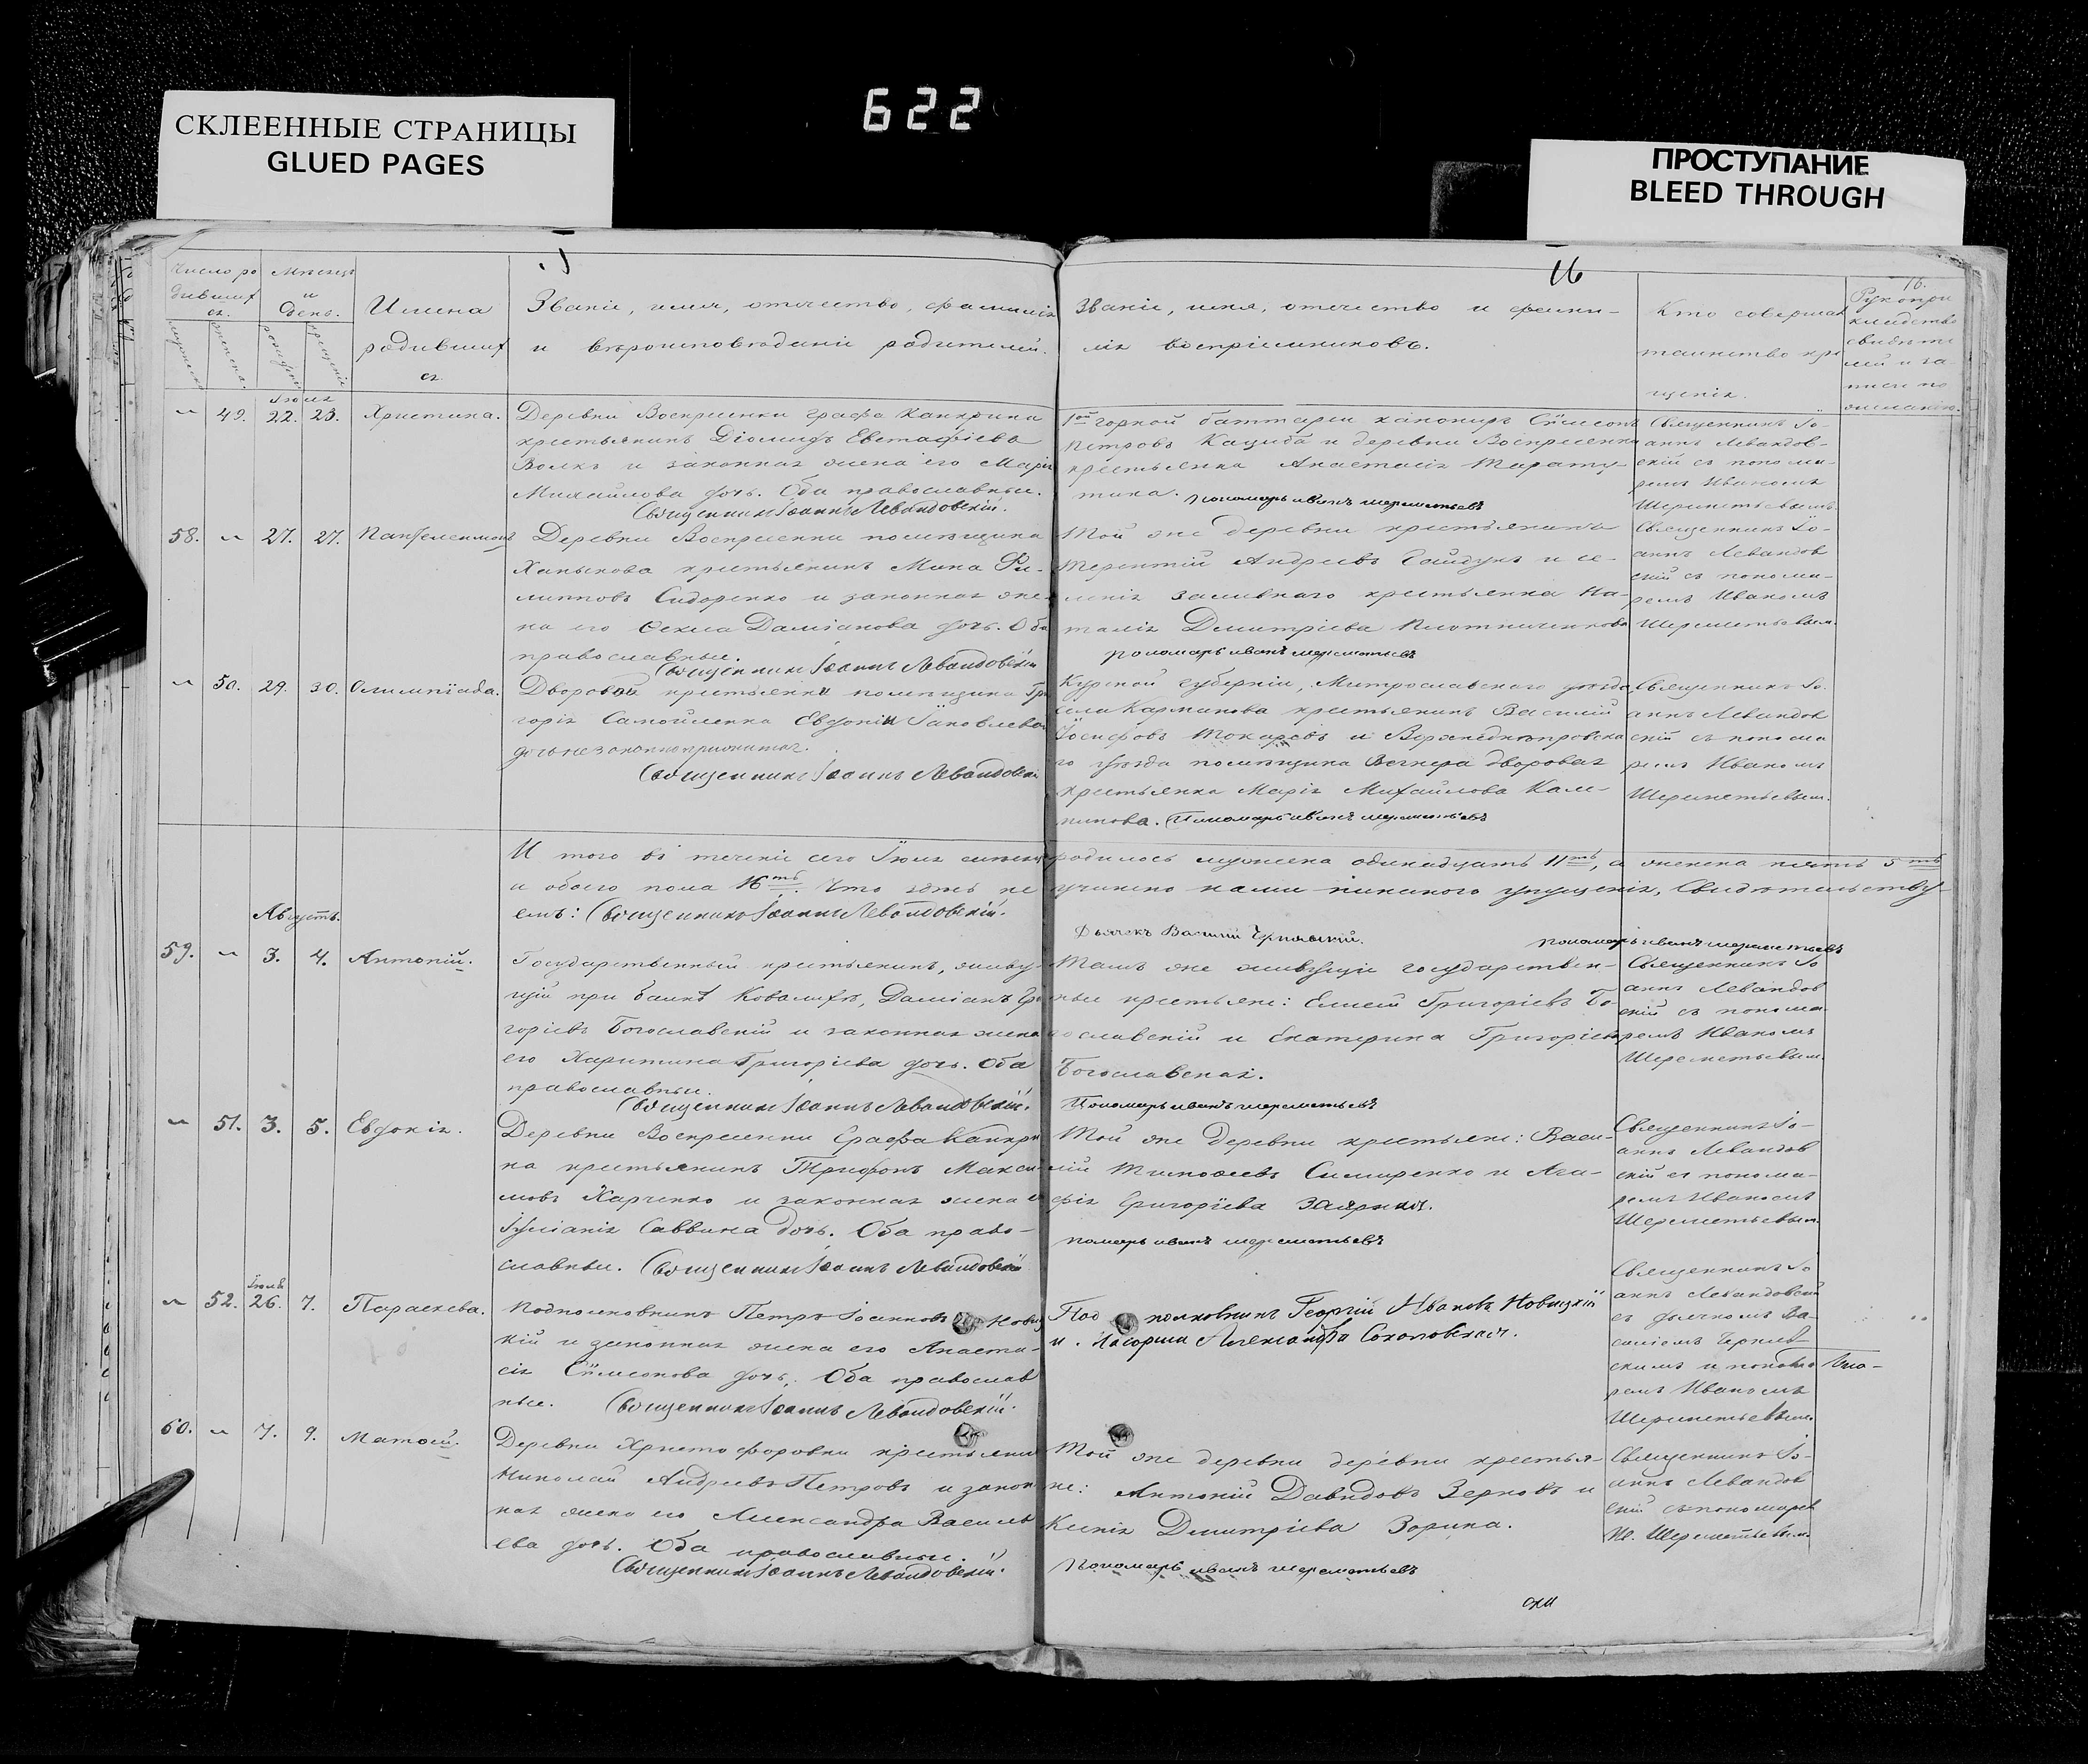 622
СКЛЕЕННЫЕ СТРАНИЦЫ
GLUED PAGES
ПРОСТУПАНИЕ
BLEED THROUGH
16
Число ро
дившихся
Мѣсяцъ
и
день.
Имена
родившихся
Званіе, имя, отчество, фамилія
и вѣроисповѣданіе родителей.
Званіе, имя, отчество и фами-
лія воспріемниковъ.
Кто совершалъ
таинство кре
щенія.
16.
Рукопри
кладство
свидѣте
лей
Іюля
49. 22. 23. Христина.
Деревни Воскресенки графа Канкрина
крестьянинъ Діомидъ Евстафіевъ
Волкъ и законная жена его Марія
Михайлова дочь. Оба православные.
Священникъ Іоаннъ Левандовскій.
1ой горной баттареи канониръ Сѵмеонъ
Петровъ Кациба и деревни Воскресенки
крестьянка Анастасія
Пономарь иванъ шереметьевъ
Священникъ Іо-
аннъ Левандов-
скій съ понома-
ремъ Иваномъ
Шереметьевымъ.
58. 27. 27. Пантелеимонъ
Деревни Воскресенки помѣщика
Ханыкова крестьянинъ Мина Фи-
липповъ Сидоренко и законная же-
на его Ѳекла Даміанова дочь. Оба
православные.
Священникъ Іоаннъ Левандовскій
Той же деревни крестьянинъ
Терентій Андреевъ Гайдукъ и се-
ленія крестьянка На-
талія Димитріева
пономарь иванъ шереметьевъ
Священникъ Іо-
аннъ Левандов
скій съ понома-
ремъ Иваномъ
Шереметьевым.
50. 29. 30. Олимпіада.
Дворовой крестьянки помѣщика Гри
горія Самойленка Евдокіи Іаковлевой
дочь незаконноприжитая.
Священникъ Іоаннъ Левандовскій
Курской губерніи, уѣзда
села Карманова крестьянинъ Василій
Іосифовъ Токаревъ и Верхнеднѣпровска
го уѣзда помѣщика Вегнера дворовая
крестьянка Марія Михайлова Кали-
нинова. Пономарь иванъ шереметьевъ
Священникъ Іо.
аннъ Левандов
скій съ понома
ремъ Иваномъ
Шереметьевым.
И того въ теченіе сего Іюля мѣсяца родилось мужеска одинадцать 11ть, а женска пять 5ть
и обоего пола 16ть. Что здѣсь не учинено нами никакого упущенія, Свидѣтельству-
емъ: Священникъ Іоаннъ Левандовскій.
Дьячекъ Василій Чернявскій.
пономарь иванъ шереметьевъ
Августъ.
59. 3. 4. Антоній.
Государственный крестьянинъ, живу-
щій при балкѣ Ковалихѣ, Даміанъ Гри
горіевъ Богославскій и законная жена
его Харитина Григоріева дочь. Оба
православные.
Священникъ Іоаннъ Левандовскій.
Тамъ же живущіе государствен-
ные крестьяне: Елисей Григоріевъ Бо-
гославскій и Екатерина Григоріева
Богославская.
Пономарь иванъ шереметьевъ
Священникъ Іо
аннъ Левандов
скій съ понома
ремъ Иваномъ
Шереметьевым.
51. 3. 5. Евдокія.
Деревни Воскресенки Графа Канкри
на крестьянинъ Трифонъ Макси-
мовъ Харченко и законная жена его
Іуліанія Саввина дочь. Оба право-
славные. Священникъ Іоаннъ Левандовскій
Той же деревни крестьяне: Васи-
лій Тимоѳеевъ Симиренко и Ага-
фія Григоріева Заярная.
понамарь иванъ шереметьевъ
Священникъ Іо-
аннъ Левандов
скій съ понома-
ремъ Иваномъ
Шереметьевым.
Іюля
52. 26. 7. Параскева.
Подполковникъ Петръ Іоанновъ Новиц
кій и законная жена его Анаста-
сія Сѵмеонова дочь. Оба православ
ные. Священникъ Іоаннъ Левандовскій.
Под полковникъ Георгій Ивановъ Новицкій
и Маіорша Александра Соколовская.
Священникъ Іо
аннъ Левандовскій
съ дьячкомъ Ва-
силіемъ Черняв
скимъ и понома
ремъ Иваномъ
Шереметьевым.
60. 7. 9. Матѳей.
Деревни Христофоровки крестьянинъ
Николай Андреевъ Петровъ и закон
ная жена его Александра Василь
ева дочь. Оба православные.
Священникъ Іоаннъ Левандовскій.
Той же деревни деревни крестья-
не: Антоній Давидовъ Зерновъ и
Ксенія Димитріева Зорина.
Пономарь иванъ шереметьевъ
Священникъ Іо-
аннъ Левандов
скій съ пономарем
И. Шереметьевым.